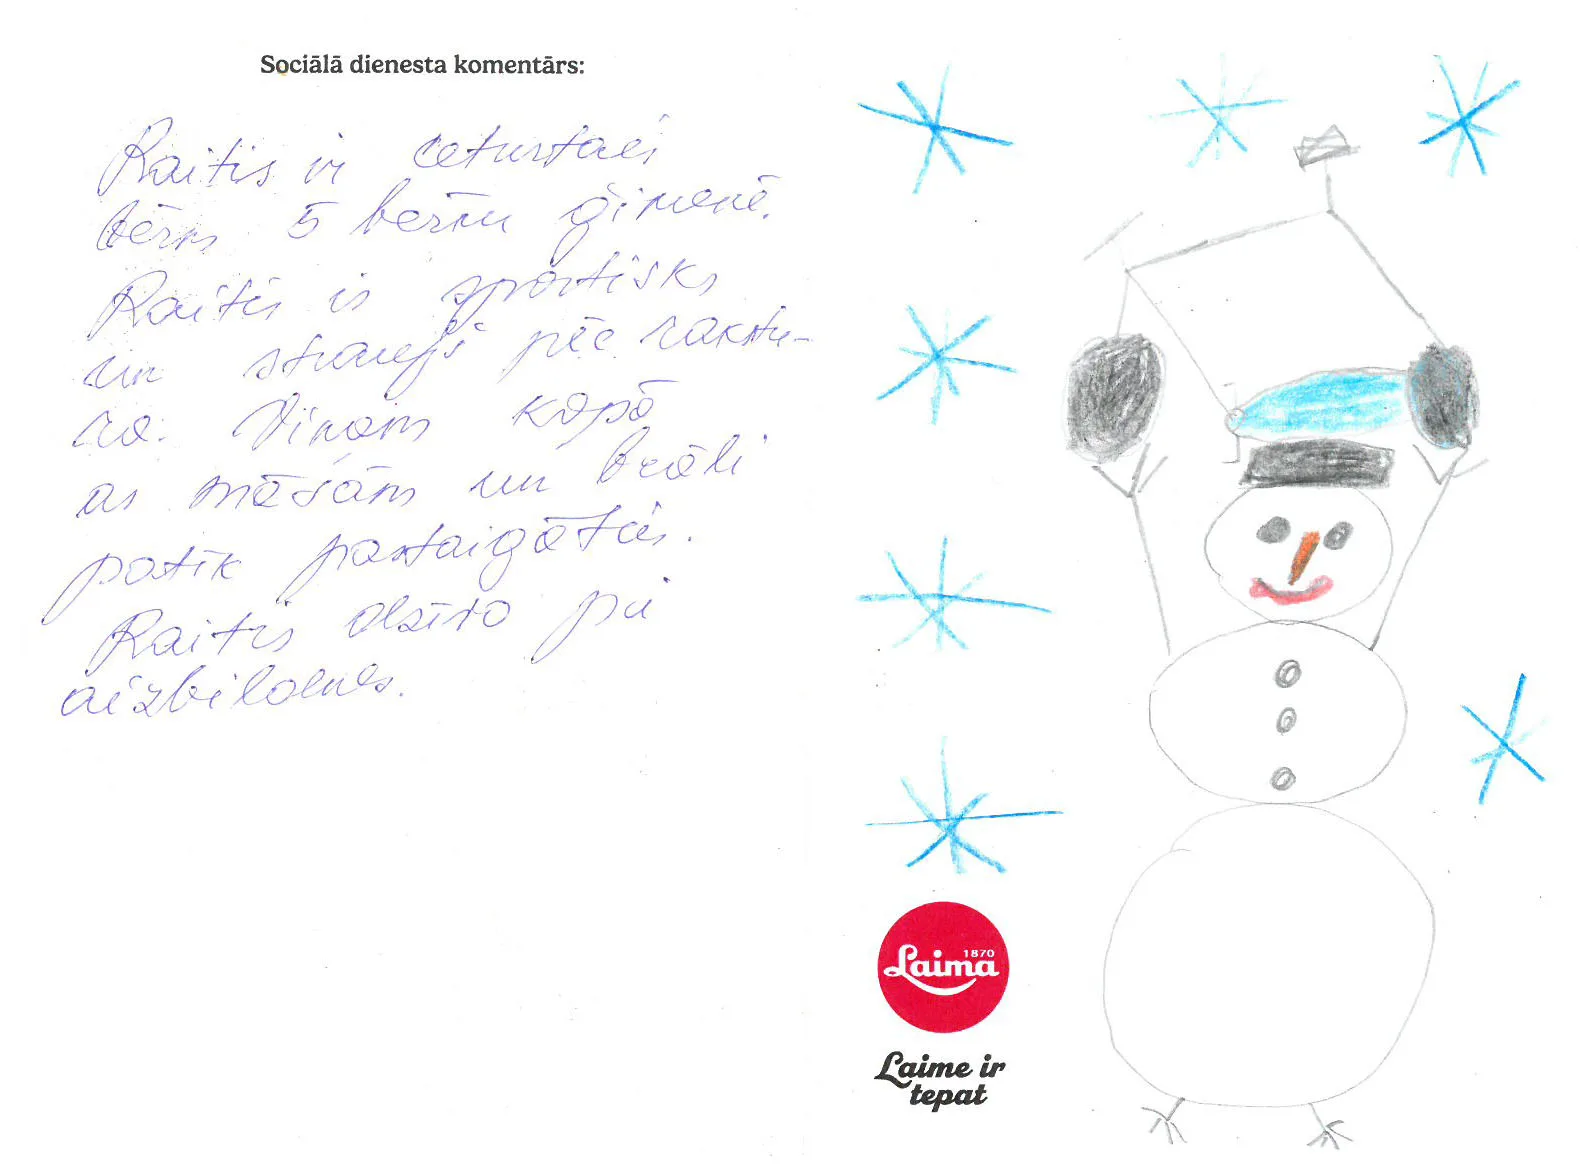 Sociālā dienesta komentārs:
Raitis ir ceturtais
bērns 5 bērnu ģimenē.
Raitis ir sportisks
un straujš pēc rakstu-
ra. Viņam kopā
ar māsām un brāli
patīk pastaigāties.
Raitis dzīvo pie
aizbildnes.
1870
Laima
Laime ir
tepat